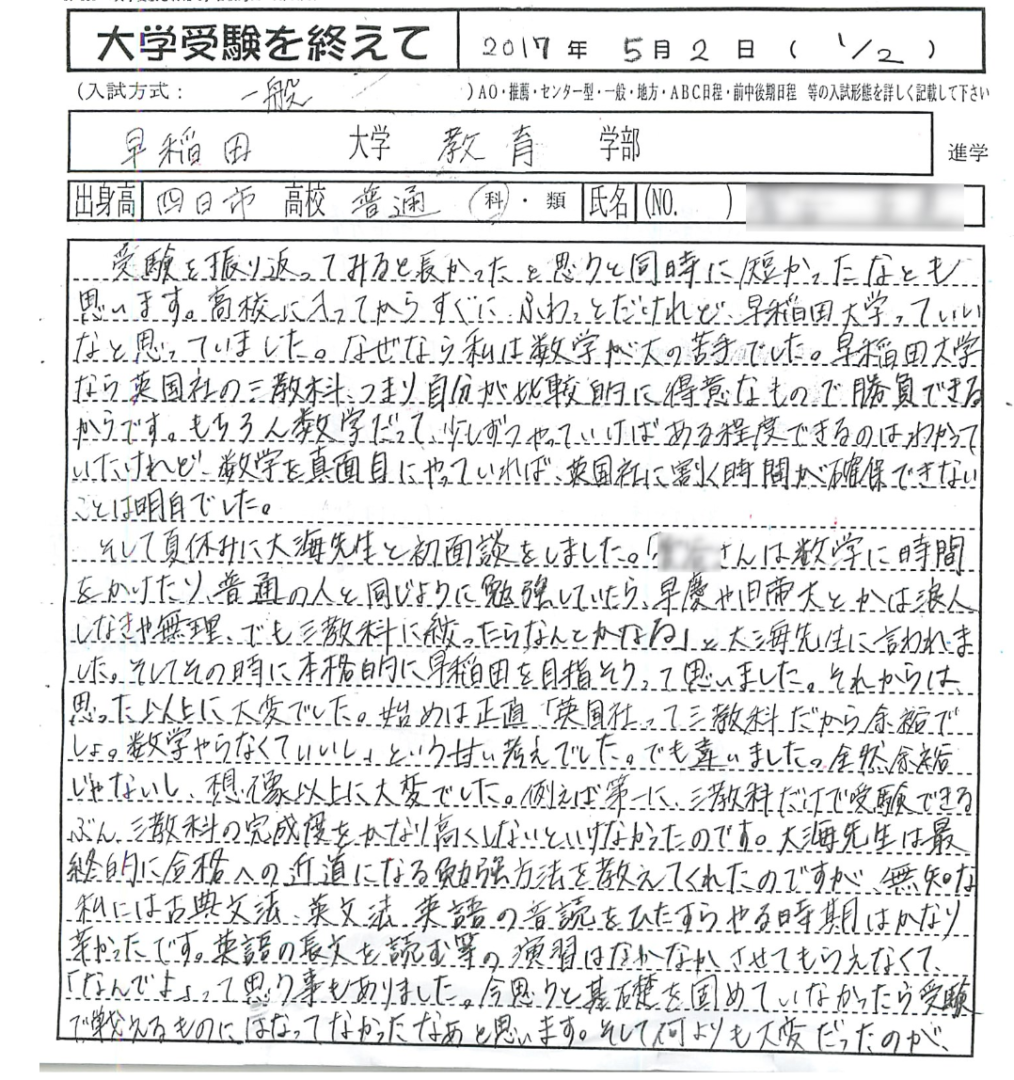 大学受験を終えて 2017年 5月2日 (1/2)
(入試方式: 一般 )AO・推薦・センター型・一般・地方・ABC日程・前中後期日程 等の入試形態を詳しく記載して下さい
早稲田 大学 教育 学部 進学
出身高 四日市 高校 普通 科・類 氏名 (NO. )
受験を振り返ってみると長かったと思うと同時に短かったなとも
思います。高校に入ってからすぐに、ふわっとだけれど、早稲田大学っていい
なと思っていました。なぜなら私は数学が大の苦手でした。早稲田大学
なら英国社の三教科、つまり自分が比較的に得意なもので勝負できる
からです。もちろん数学だって、少しずつやっていけばある程度できるのはわかって
いたけれど、数学を真面目にやっていれば、英国社に割く時間が確保できない
ことは明白でした。
そして夏休みに大海先生と初面談をしました。「さんは数学に時間
をかけたり、普通の人と同じように勉強していたら、早慶や旧帝大とかは浪人
しなきゃ無理、でも三教科に絞ったらなんとかなる」と大海先生に言われま
した。そしてその時に本格的に早稲田を目指そうって思いました。それからは、
思った以上に大変でした。始めは正直「英国社って三教科だから余裕で
しょ。数学やらなくていいし」という甘い考えでした。でも違いました。全然余裕
じゃないし、想像以上に大変でした。例えば第一に、三教科だけで受験できる
ぶん、三教科の完成度をかなり高くしないといけなかったのです。大海先生は最
終的に合格への近道になる勉強方法を教えてくれたのですが、無知な
私には古典文法、英文法、英語の音読をひたすらやる時期はかなり
辛かったです。英語の長文を読む等の演習はなかなかさせてもらえなくて、
「なんでよ」って思う事もありました。今思うと基礎を固めていなかったら受験
で戦えるものにはなってなかったなあと思います。そして何よりも大変だったのが、